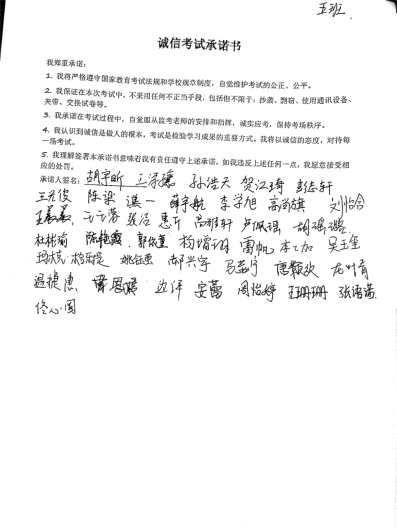 五班
诚信考试承诺书
我郑重承诺：
1. 我将严格遵守国家教育考试法规和学校规章制度，自觉维护考试的公正、公平。
2. 我保证在本次考试中，不采用任何不正当手段，包括但不限于：抄袭、剽窃、使用通讯设备、
夹带、交换试卷等。
3. 我承诺在考试过程中，自觉服从监考老师的安排和指挥，诚实应考，保持考场秩序。
4. 我认识到诚信是做人的根本，考试是检验学习成果的重要方式。我将以诚信的态度，对待每
一场考试。
5. 我理解签署本承诺书意味着我有责任遵守上述承诺，如我违反上述任何一点，我愿意接受相
应的处罚。
承诺人签名：胡宇昕 孙浩天 贺江琦 彭志轩
王元俊 陈梁 谯一 薛宇航 李学旭 高尚旗 刘怡含
张洁 惠齐 高雅轩 卢佩瑶 胡瑶璐
杜楷瑜 陈艳霞 郭依董 杨增琳 雷帆 李加 吴玉玺
姚钰恵 郝兴宇 马嘉宁 唐颖欣 龙叶青
边洋 安蕾 周怡婷 王珊珊 张语诺
佟心圆